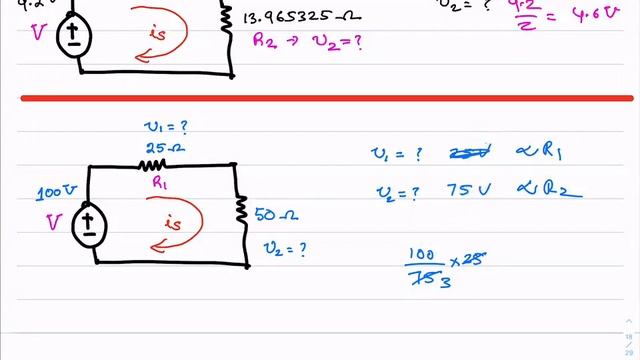 9.2 V
V
is
13.965325 Ω
R2 → v2 = ?
v2 = ?
9.2/2 = 4.6 V
v1 = ?
25 Ω
R1
100V
V
is
50 Ω
v2 = ?
v1 = ? 25V ∝ R1
v2 = ? 75 V ∝ R2
100/75 3 × 25
18
/
29